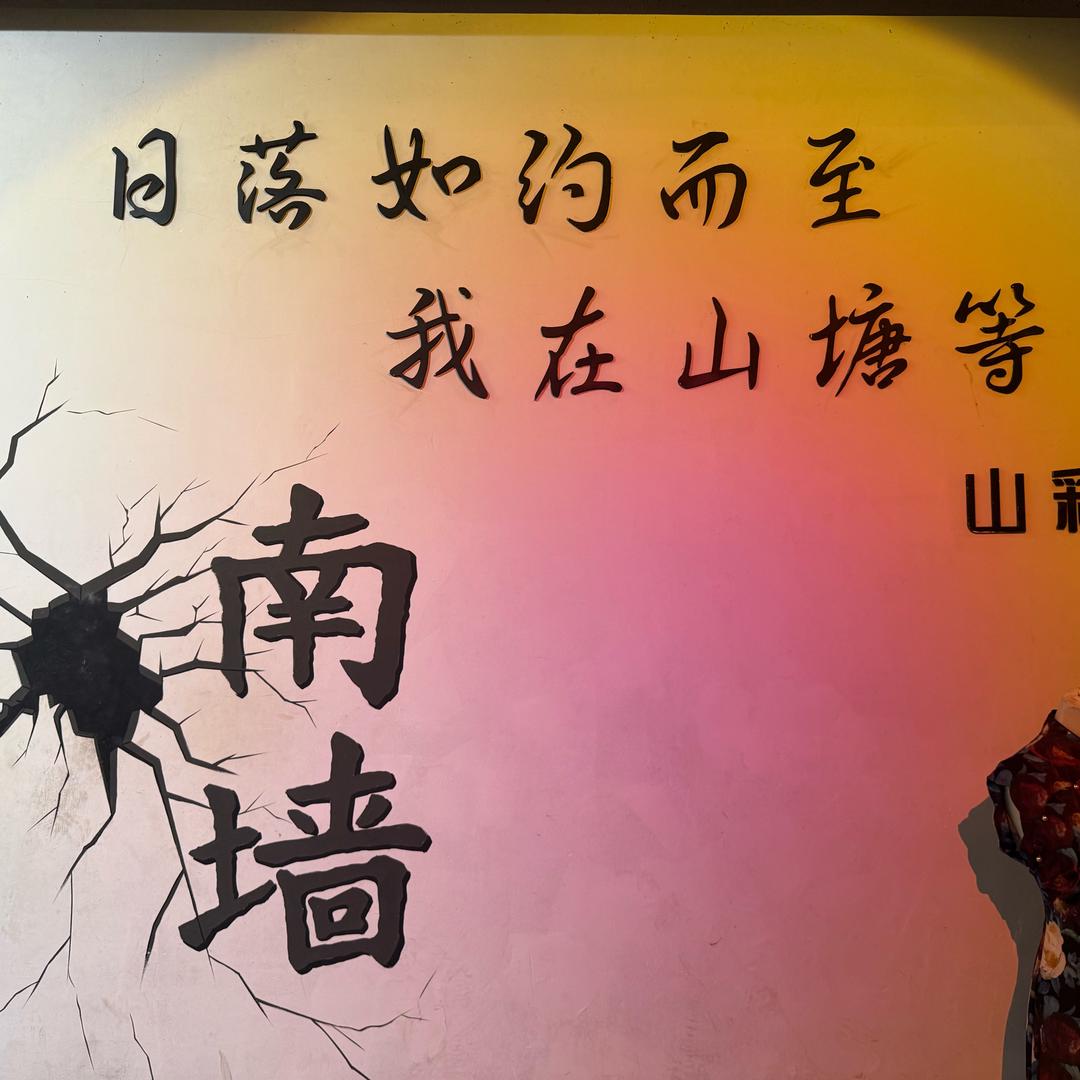 日落如约而至
我在山塘等
山
南
墙